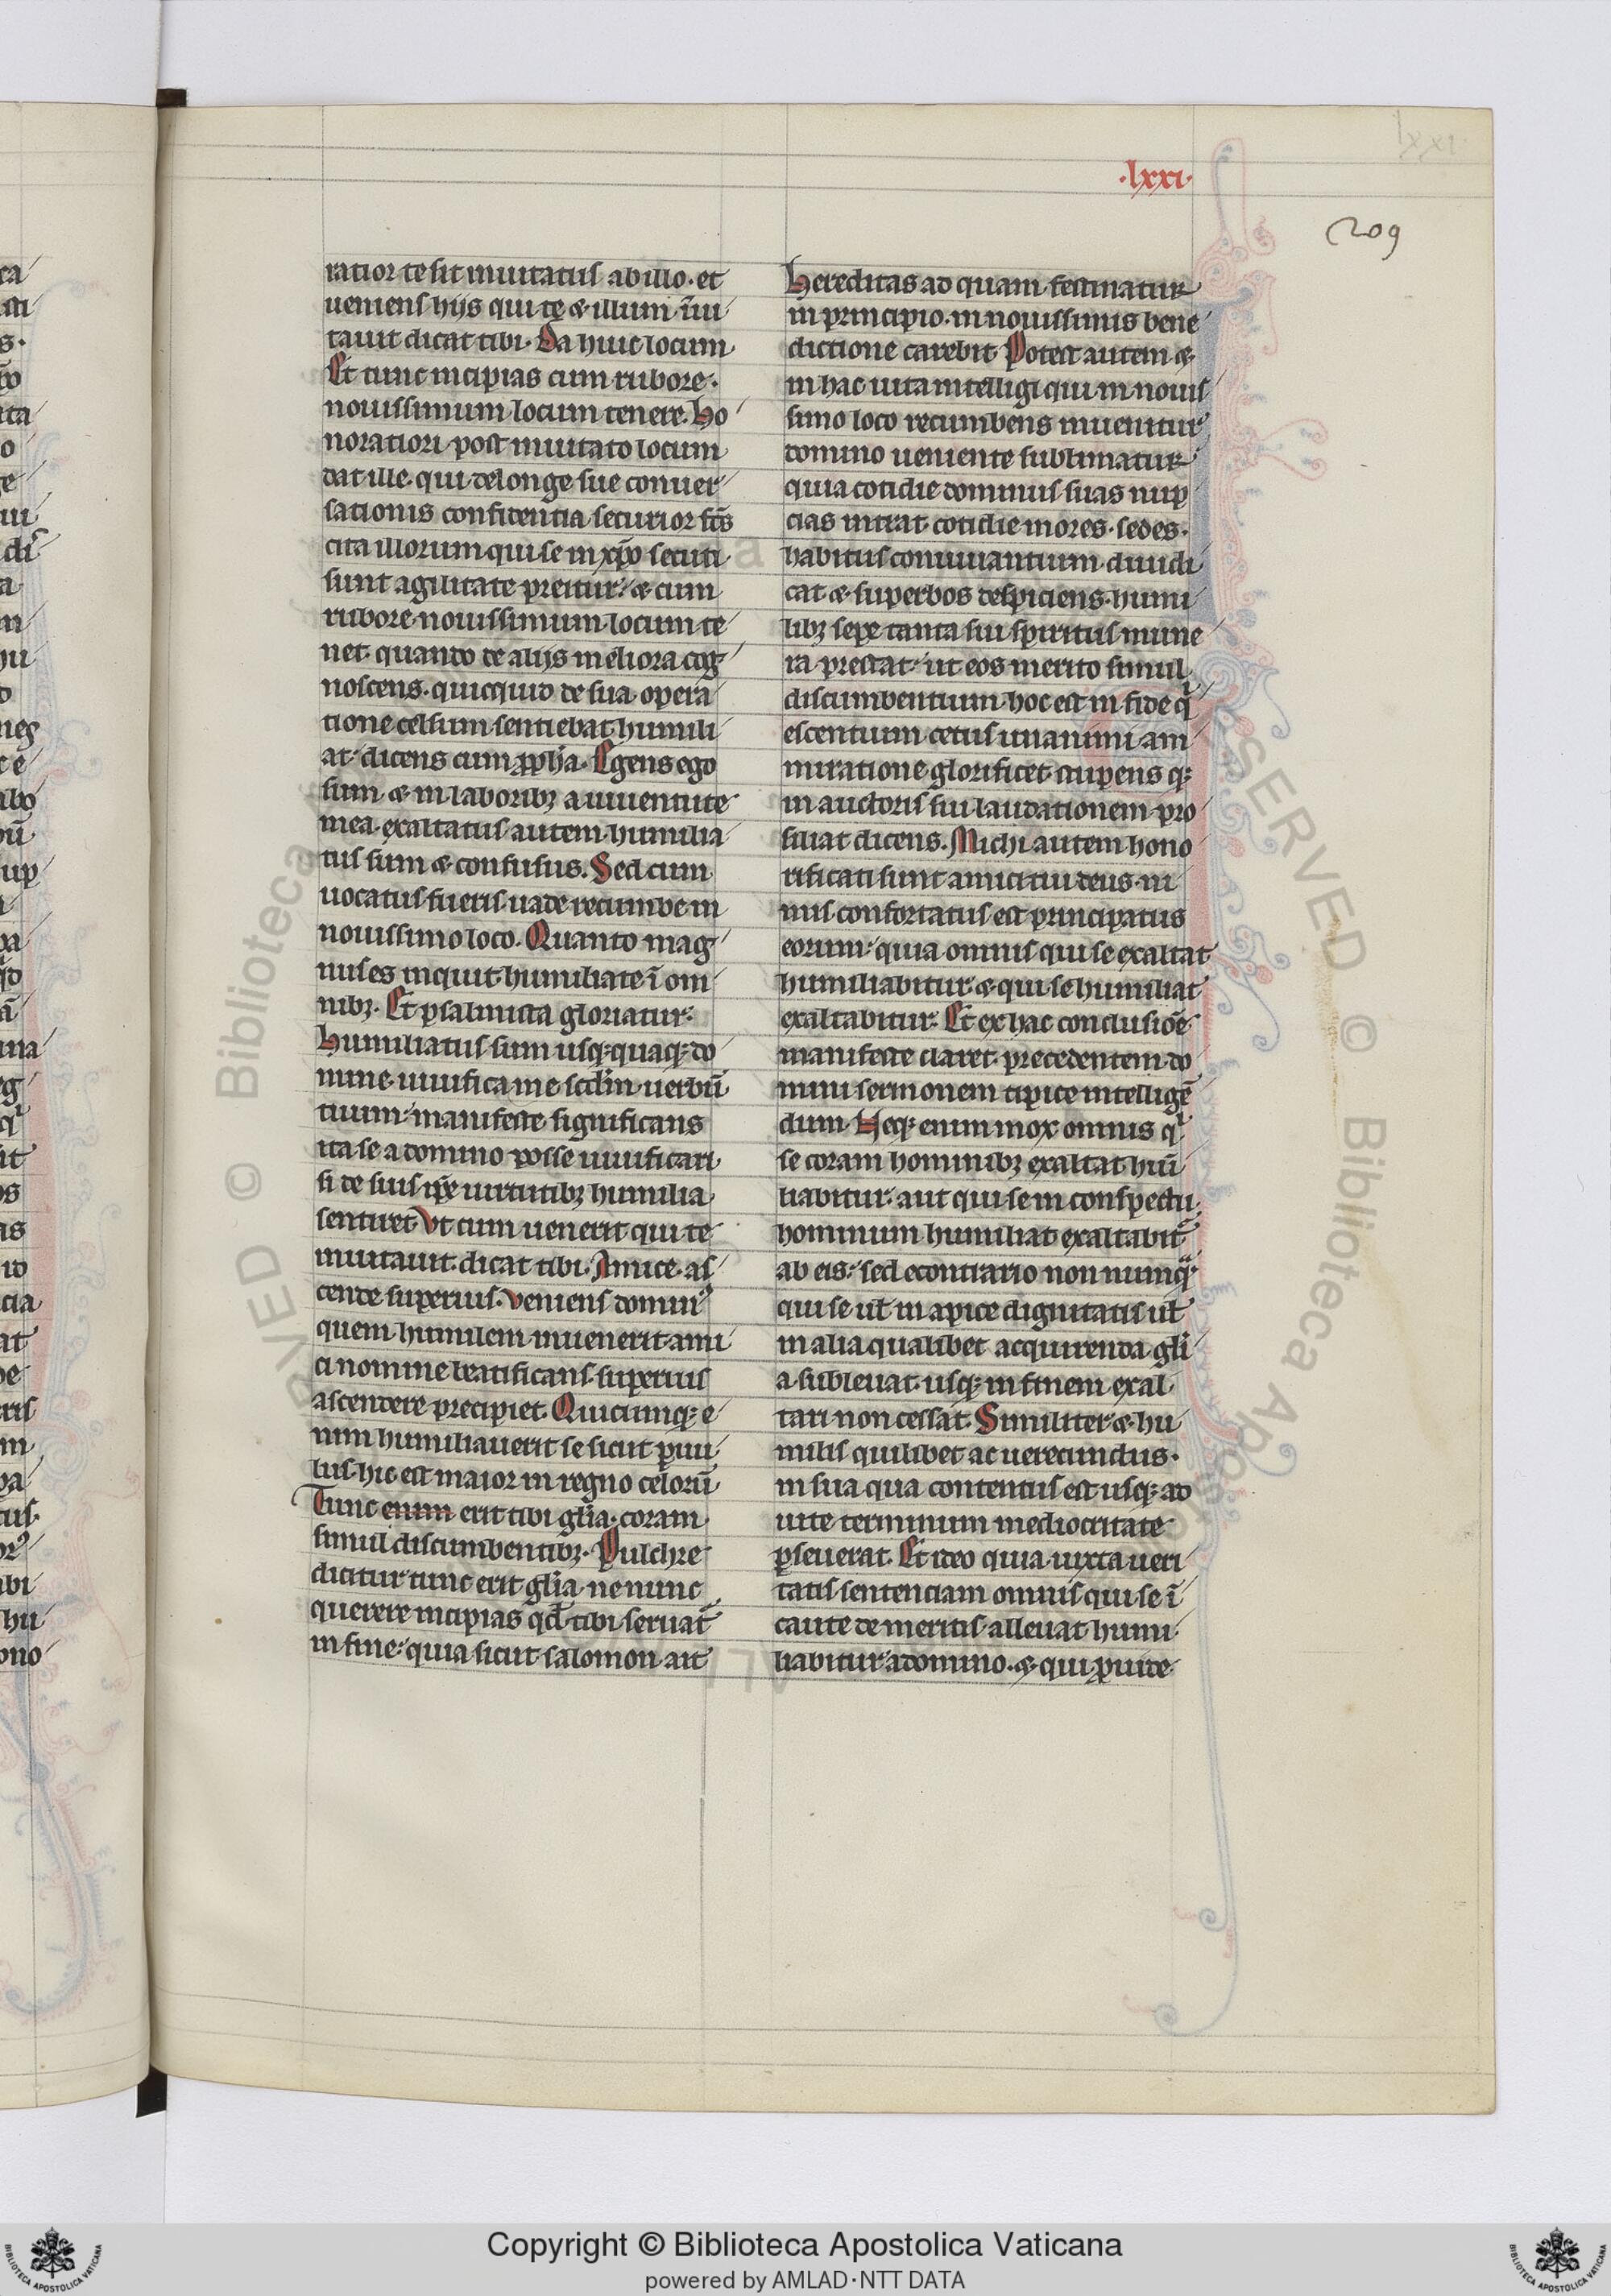 .lxxi.
209
ratior te sit inuitatus ab illo. et
ueniens hijs qui te & illum inui
tauit dicat tibi. Da huic locum
Et tunc incipias cum rubore.
nouissimum locum tenere. Ho
noratiori post inuitato locum
dat ille qui de longe sue conuer
sationis confidentia securior fc̄s
cita illorum qui se in xp̄o secuti
sunt agilitate preitur: & cum
rubore nouissimum locum te
net quando de alijs meliora cog
noscens. quicquid de sua opera
tione celsum sentiebat humili
at. dicens cum ꝓph̄a. Egens ego
sum & in laboribꝫ a iuuentute
mea. exaltatus autem humilia
tus sum & confusus. Sed cum
uocatus fueris uade recumbe in
nouissimo loco. Quanto mag
nus es inquit humilia te ī om
nibꝫ. Et psalmista gloriatur.
Humiliatus sum usqꝫ quaqꝫ do
mine uiuifica me scd̄m uerbū
tuum: manifeste significans
ita se a domino posse uiuificari
si de suis ip̄e uirtutibꝫ humilia
sentiret Vt cum uenerit qui te
inuitauit dicat tibi. Amice as
cende superius. Veniens dominꝰ
quem humilem inuenerit ami
ci nomine beatificans superius
ascendere precipiet. Quicumqꝫ e
nim humiliauerit se sicut ꝑuu
lus. hic est maior in regno celorū
Tunc enim erit tibi gl̄ia coram
simul discumbentibꝫ. Pulchre
dicitur tunc erit gl̄ia ne nunc
querere incipias qd̄ tibi seruat̄
in fine: quia sicut salomon ait
Hereditas ad quam festinatur
in principio. in nouissimis bene
dictione carebit Potest autem &
in hac uita intelligi qui in nouis
simo loco recumbens inuenitur
domino ueniente sublimatur
quia cotidie dominus suas nup
cias intrat cotidie mores. sedes.
habitus conuiuantium diiudi
cat & superbos despiciens humi
libꝫ sepe tanta sui spiritus mune
ra prestat: ut eos merito simul
discumbentium hoc est in fide qⁱ
escentium cetus unanimi am
miratione glorificet stupens qꝫ
in auctoris sui laudationem pro
siliat dicens. Michi autem hono
rificati sunt amici tui deus. ni
mis confortatus est principatus
eorum: quia omnis qui se exaltat
humiliabitur & qui se humiliat
exaltabitur. Et ex hac conclusiōe
manifeste claret precedentem do
mini sermonem tipice intelligē
dum Neqꝫ enim mox omnis qⁱ
se coram hominibꝫ exaltat humī
liabitur. aut qui se in conspectu
hominum humiliat exaltabit̄
ab eis: sed econtrario non numqͣ
qui se ul̄ in apice dignitatis ul̄
in alia qualibet acquirenda gl̄i
a subleuat. usqꝫ in finem exal
tari non cessat. Similiter & hu
milis quilibet ac uerecundus.
in sua qua contentus est usqꝫ ad
uite terminum mediocritate
ꝑseuerat. Et ideo quia iuxta ueri
tatis sentenciam omnis qui se ī
caute de meritis alleuat humi
liabitur a domino. & qui ꝓuide
Copyright © Biblioteca Apostolica Vaticana
powered by AMLAD·NTT DATA